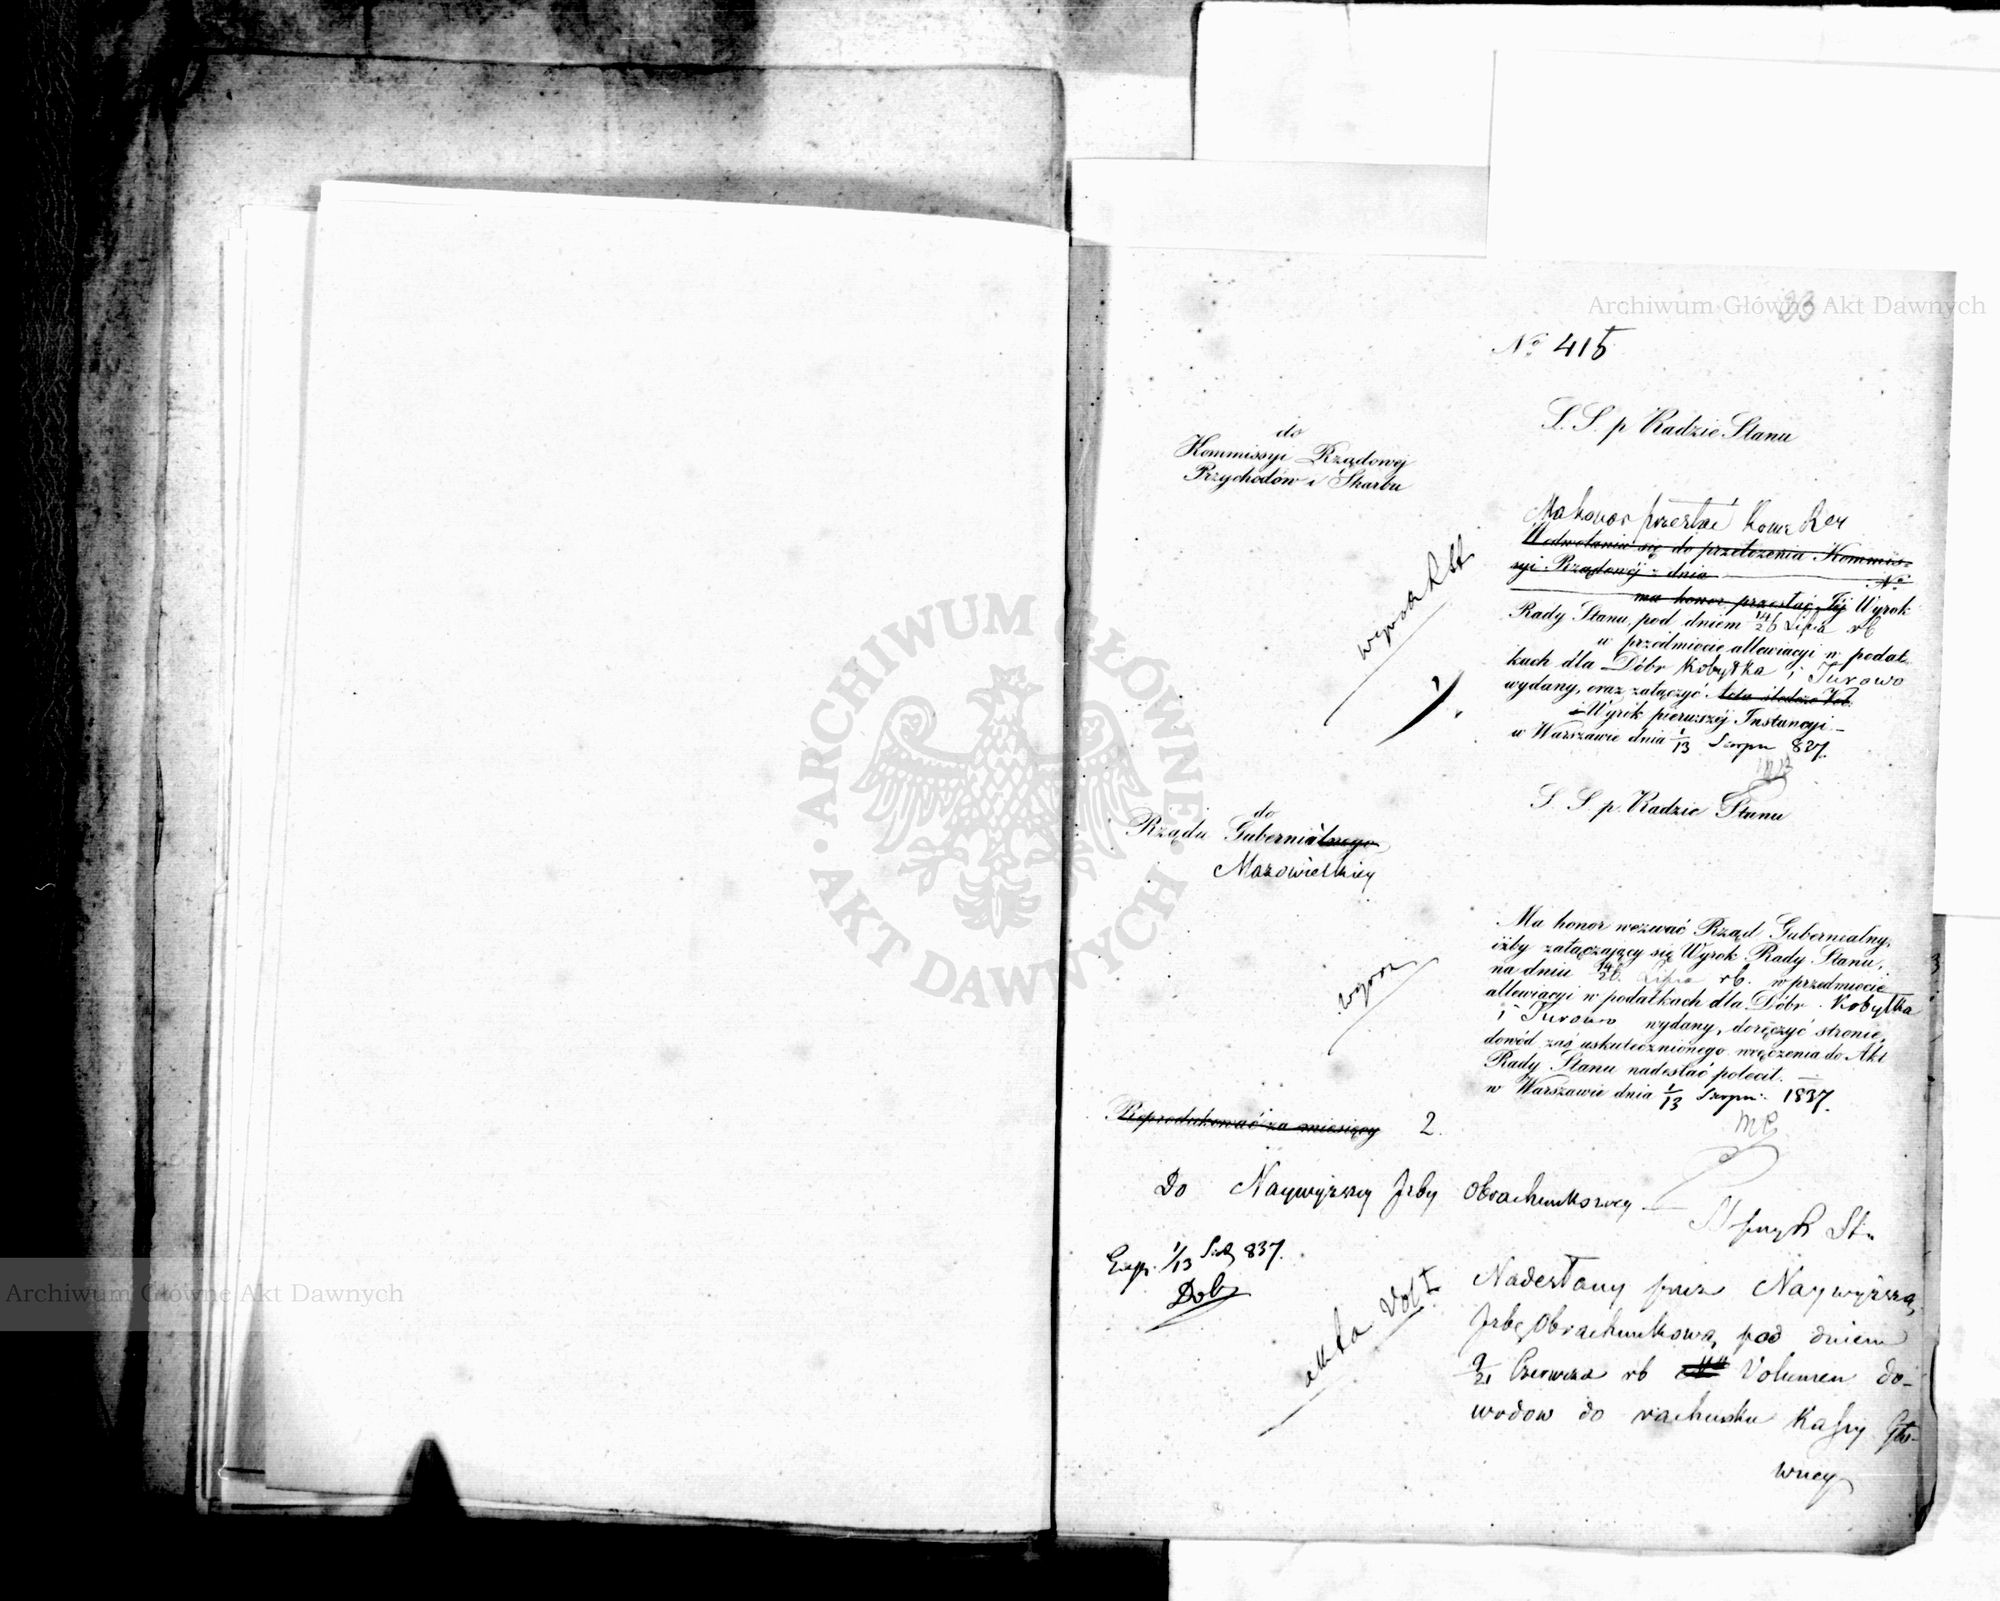 33
Nº 415
S. S. p Radzie Stanu
do
Kommissyi Rządowej
Przychodów i Skarbu
Ma honor przesłać Kom: Rz
W odwołaniu się do przełożenia Kommis-
syi Rządowej z dnia Nº
ma honor przesłać Jéj Wyrok
Rady Stanu, pod dniem 14/26 Lipca rb
w przedmiocie allewiacyi w podat-
kach dla Dóbr Kobyłka i Turowo
wydany, oraz załączyć
i Wyrok pierwszéj Instancyi
w Warszawie dnia 1/13 Sierpn 837.
S. S. p. Radzie Stanu
do
Rządu Gubernialnego
Mazowieckiey
Ma honor wezwać Rząd Gubernialny,
iżby załączający się Wyrok Rady Stanu,
na dniu 14/26 Lipca rb. w przedmiocie
allewiacyi w podatkach dla Dóbr Kobyłka
i Turowo wydany, doręczyć stronie,
dowód zaś uskutecznionego wręczenia do Akt
Rady Stanu nadesłać polecił.
w Warszawie dnia 1/13 Sierpn: 1837.
Reprodukować za miesięcy 2.
Do Naywyższey Izby Obrachunkowey
1/13 837.
Dob
akta Vol I
Nadesłany przez Naywyższą
Izbę Obrachunkową, pod dniem
9/21 Czerwca rb Volumen do-
wodow do rachunku Kassy Głó-
wney
Archiwum Główne Akt Dawnych
Archiwum Główne Akt Dawnych
ARCHIWUM GŁÓWNE AKT DAWNYCH